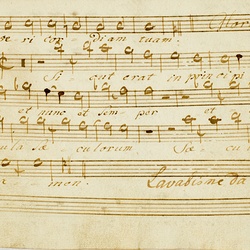 se ri cor diam tuam.
Si cut erat in princi pi
et nunc et sem per et
cula sæ culorum Sæ cu
men. Lavabis me da